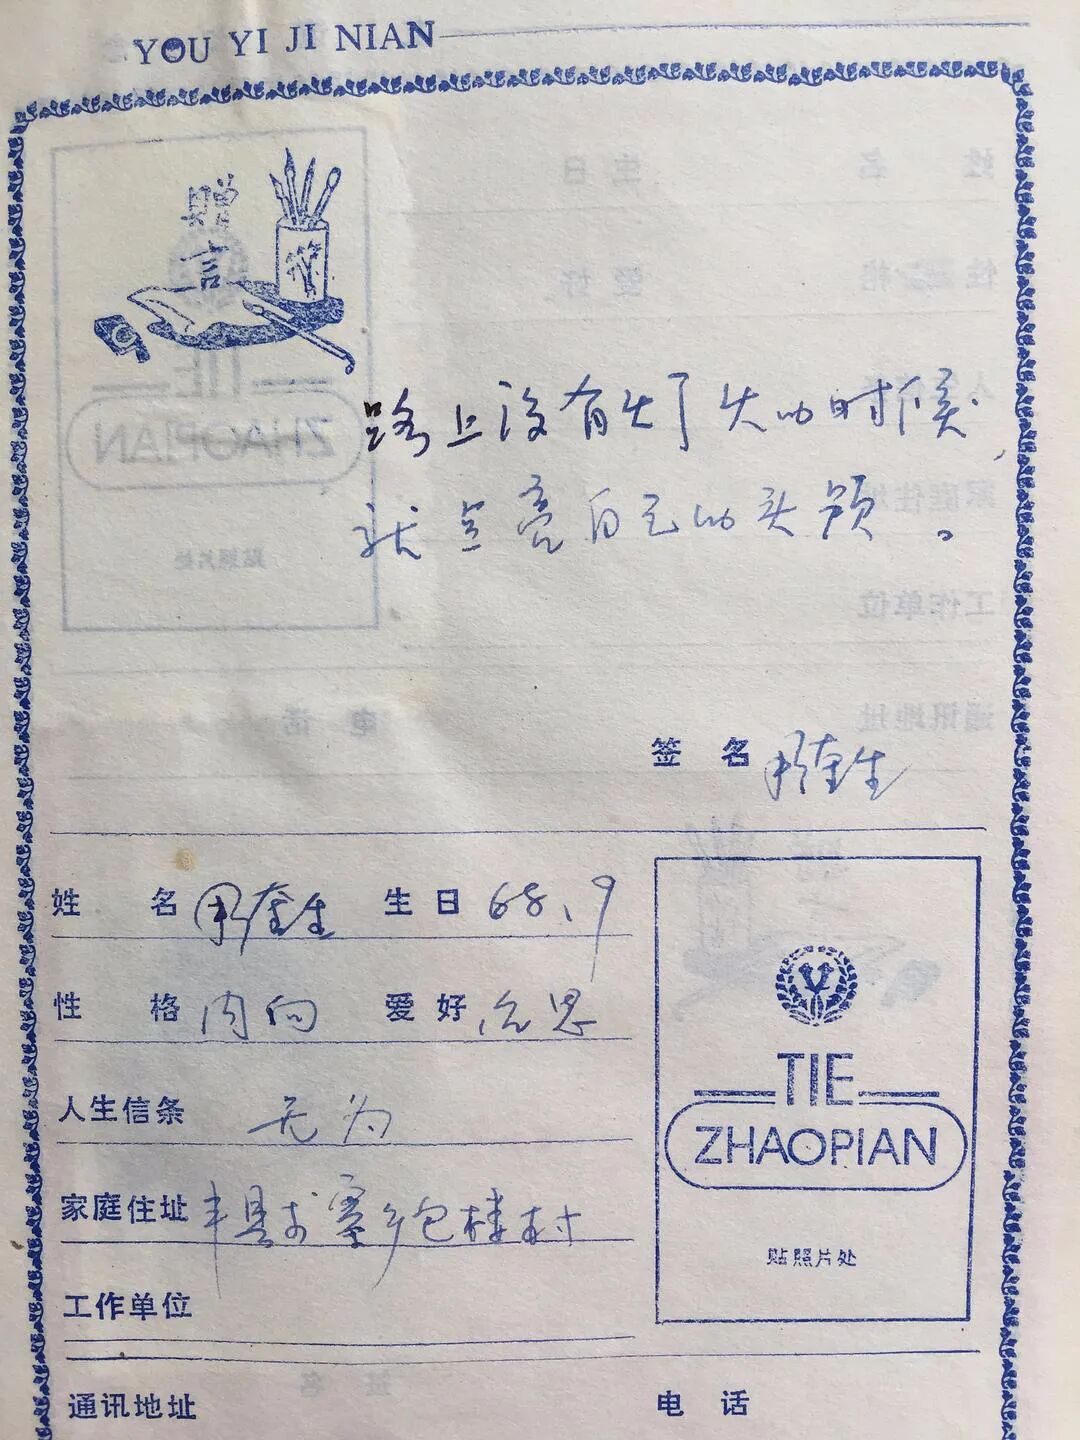 YOU YI JI NIAN
赠
言
路上没有灯火的时候,
就点亮自己的头颅。
签 名 奎生
姓 名 奎生 生日 68、9
性 格 内向 爱好 沉思
人生信条 无为
家庭住址 丰县 寨乡包楼村
工作单位
通讯地址 电 话
TIE
ZHAOPIAN
贴照片处